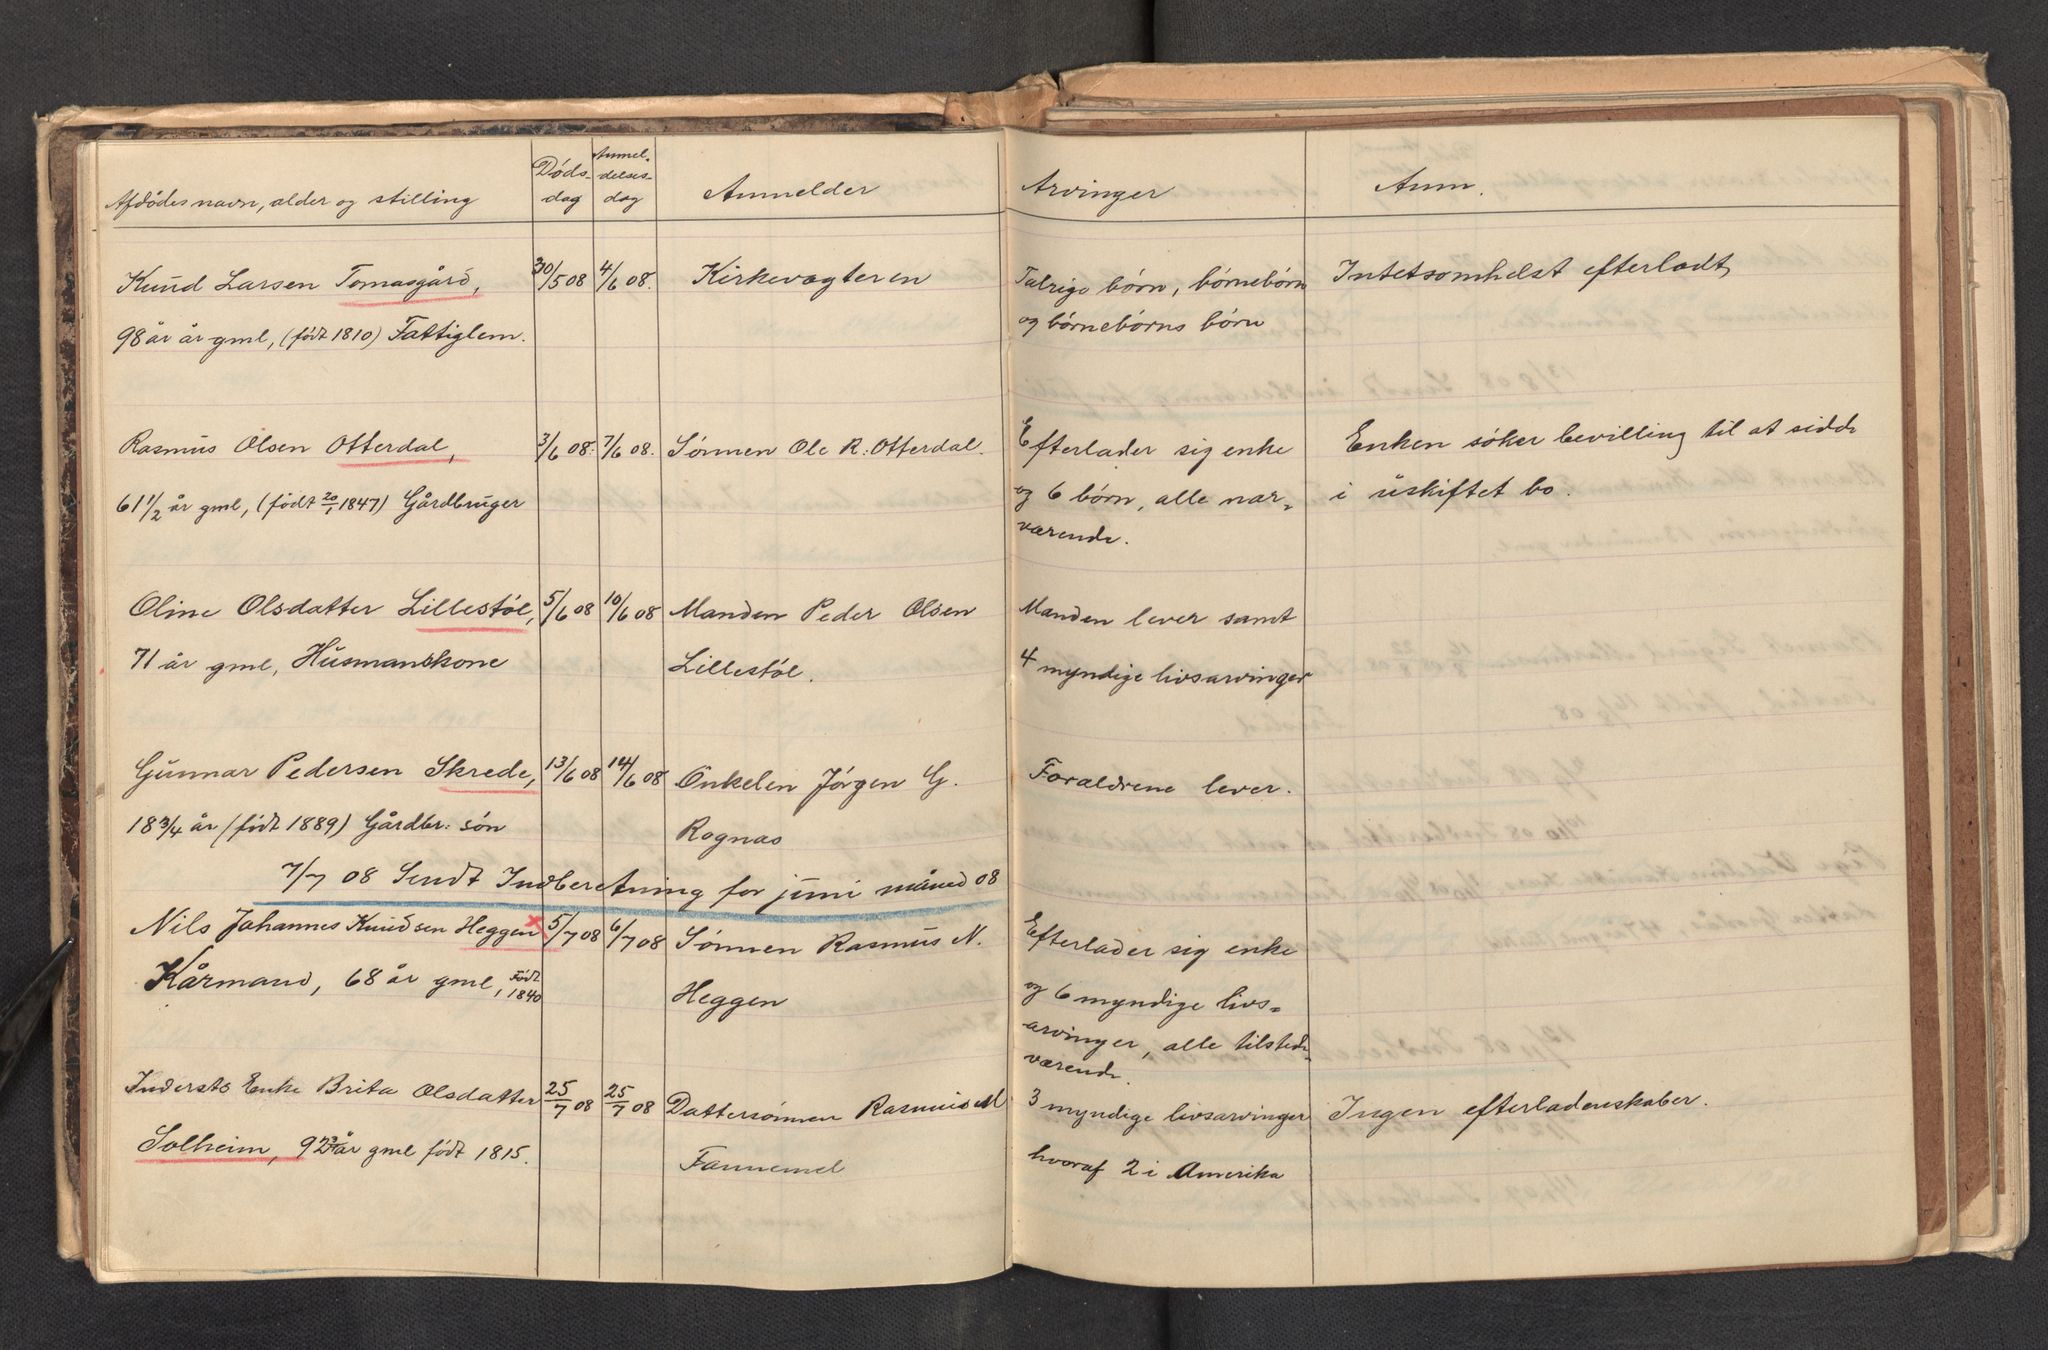 Afdödes navn, alder og stilling Døds- dag Anmel- delses- dag Anmelder Arvinger Anm.
Knud Larsen Tomasgård, 30/5 08 4/6 08. Kirkevagteren Talrige børn, børnebørn Intetsomhelst efterladt,
98 år år gml, (født 1810) Fattiglem. og børnebørns børn
Rasmus Olsen Otterdal, 3/6 08. 7/6 08. Sønnen Ole R. Otterdal. Efterlader sig enke Enken søker bevilling til at sidde
61 1/2 år gml, (født 20/1 1847) Gårdbruger og 6 børn, alle nær- i uskiftet bo.
værende.
Oline Olsdatter Lillestøl, 5/6 08 10/6 08 Manden Peder Olsen Manden lever samt
71 år gml, Husmanskone Lillestøl. 4 myndige livsarvinger
Gunnar Pedersen Skrede, 13/6 08 14/6 08 Onkelen Jørgen G. Forældrene lever.
18 3/4 år (født 1889) Gårdbr: søn Rognas
7/7 08 Sendt Indberetning for juni måned 08
Nils Johannes Knudsen Heggen 5/7 08 6/7 08 Sønnen Rasmus N. Efterlader sig enke
Kårmand, 68 år gml, Født 1840 Heggen og 6 myndige livs-
arvinger, alle tilstede-
værende.
Indersts Enke Brita Olsdatter 25/7 08 25/7 08 Dattersønnen Rasmus M 3 myndige livsarvinger Ingen efterladenskaber.
Solheim, 93 år gml født 1815. Fannemel hvoraf 2 i Amerika